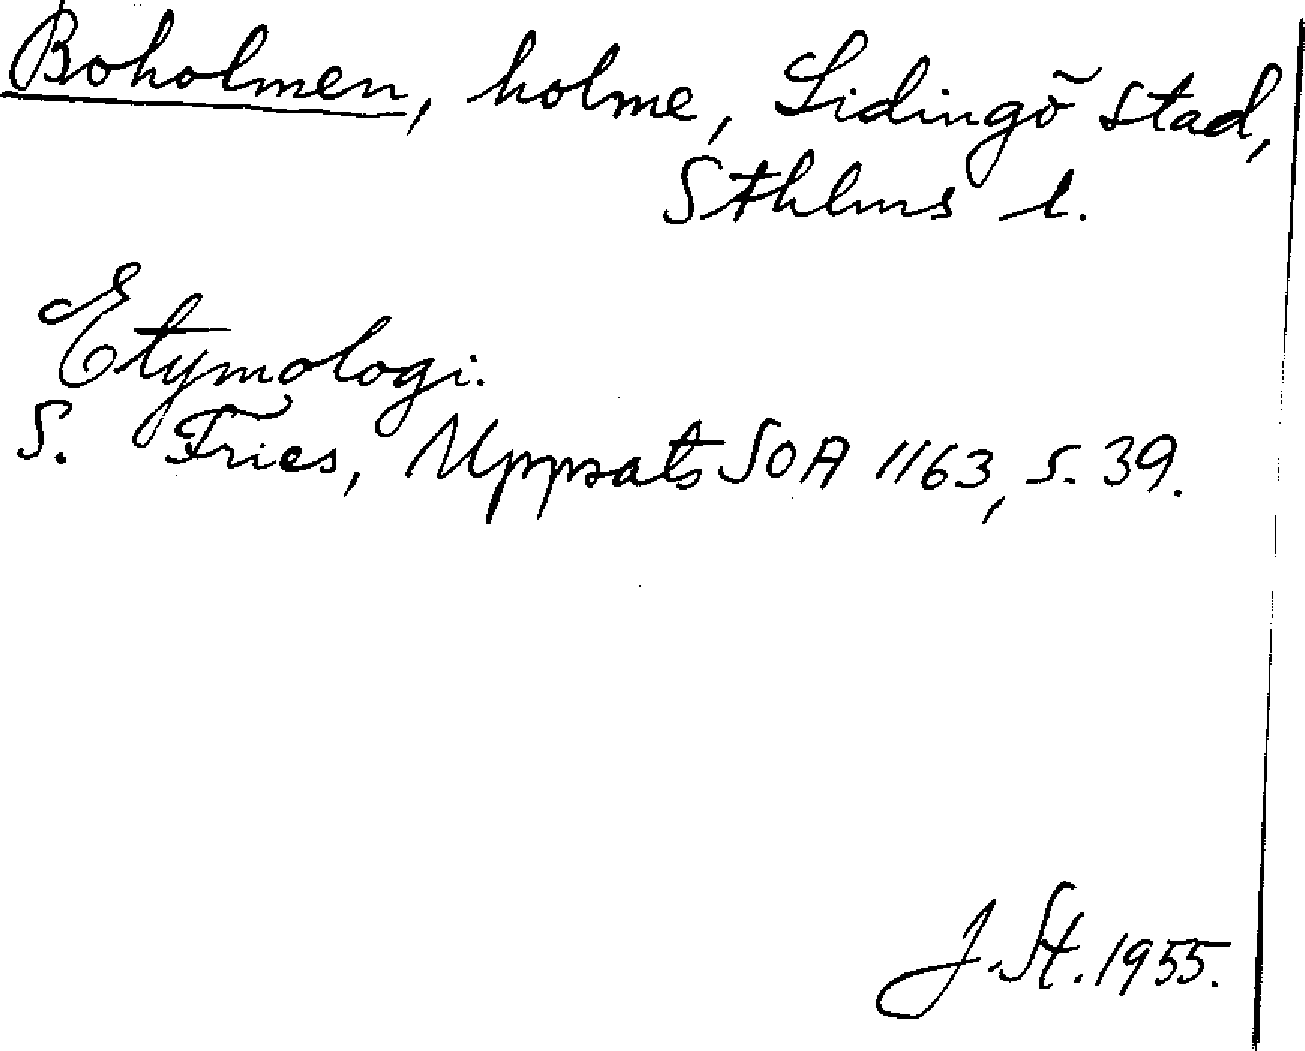 Boholmen, holme, Lidingö stad,
Sthlms l.
Etymologi.
S. Fries, Uppsats SOA 1163, s. 39.
J. St. 1955.